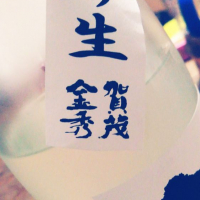 生
賀茂
金秀